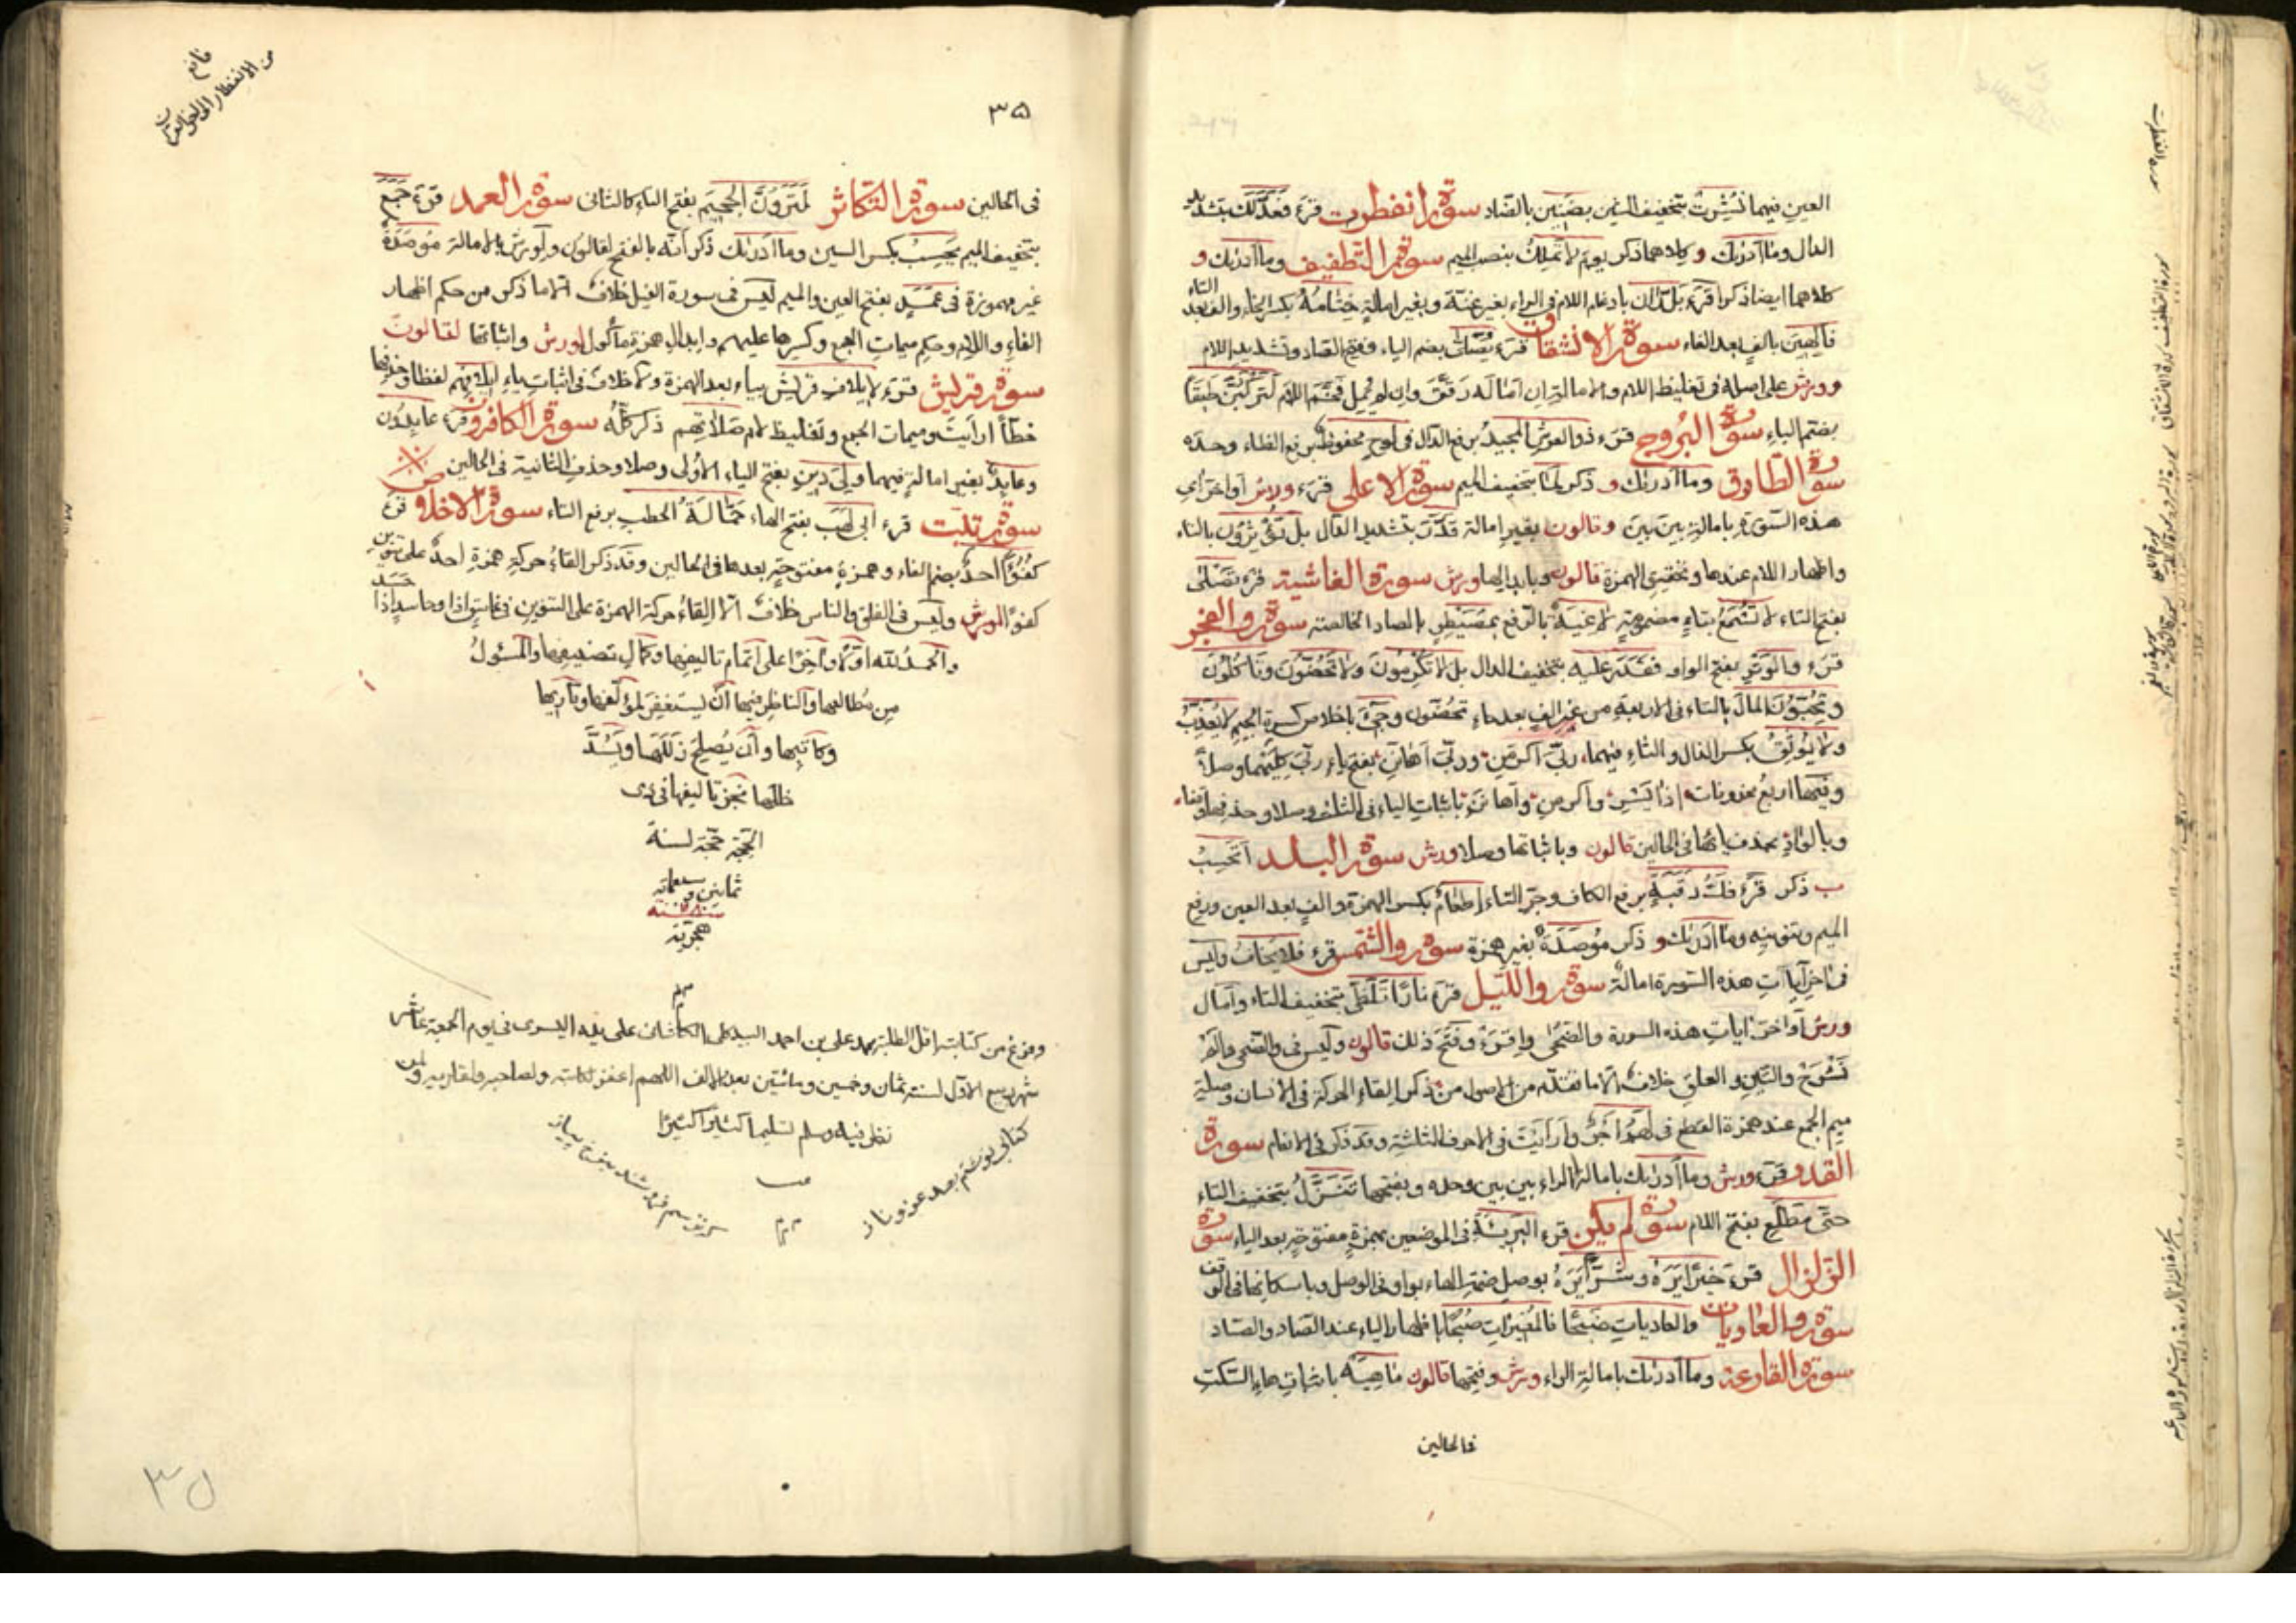 العين فيهما نُشِرَتْ بتخفيف الشين بضنين بالضاد سورة انفطرت قرء فَعَدَّلَكَ بتشديد
الدال وما أدريك و كلاهما ذكر يومَ لا تملك بنصب الميم سورة التطفيف وما أدريك و
كلاهما ايضا ذكرا قرء بَل رَّان بادغام اللام في الراء بغير غنة وبغير امالة ختامه بكسر الخاء والف بعد التاء
فاكهين بالف بعد الفاء سورة الانشقاق قرء يُصَلَّى بضم الياء وفتح الصاد وتشديد اللام
وورش على اصله في تغليظ اللام والامالة ان امال رقق وان لم يمل فخم اللام لَتَرْكَبُنَّ طبقا
بضم الباء سورة البروج قرء ذو العرش المجيدُ برفع الدال في لوح محفوظٌ برفع الظاء وحده
سورة الطارق وما أدريك و ذكر لَمَا بتخفيف الميم سورة الاعلى قرء ورش أواخر آي
هذه السورة بامالة بين بين وقالون بغير امالة قَدَّرَ بتشديد الدال بل تؤثرون بالتاء
واظهار اللام عندها وتحقيق الهمزة قالون وبابدالها ورش سورة الغاشية قرء تَصْلَى
بفتح التاء لا تُسْمَعُ بتاء مضمومة لاغيةٌ بالرفع بمصيطر بالصاد الخالصة سورة والفجر
قرء والوَتر بفتح الواو فقَدَرَ عليه بتخفيف الدال بل لا تكرمون ولا تحضون وتاكلون
وتحبون المال بالتاء في الاربعة من غير الف بعد حاء تحضون وجيء باخلاص كسرة الجيم لا يُعَذِّبُ
ولا يُوثِقُ بكسر الذال والثاء فيهما ربيَ أكرمن وربيَ أهانن بفتح ياء ربي كليهما وصلا
وفيها اربع محذوفات اذا يسر وأكرمن وأهانن باثبات الياء في الثلث وصلا وحذفها وقفا
وبالواد بحذف يائها في الحالين قالون وباثباتها وصلا ورش سورة البلد أيحسِب
ب ذكر قرء فَكُّ رَقَبَةٍ برفع الكاف وجر التاء إطعامٌ بكسر الهمزة والف بعد العين ورفع
الميم وتنوينه وما أدريك و ذكر موصدة بغير همزة سورة والشمس قرء فلا يخافُ وليس
في اخر آيات هذه السورة امالة سورة والليل قرء نارًا تلظى بتخفيف التاء وأمال
ورش أواخر ايات هذه السورة والضحى واقرء وفتح ذلك قالون وليس في والضحى والم
نشرح والتين والعلق خلافٌ الا ما تقدم من الاصول من ذكر القاء الحركة في الانسان وصلة
ميم الجمع عند همزة القطع في لهم أجر وأرأيت في الاحرف الثلثة وقد ذكر في الانعام سورة
القدر قرء ورش وما أدريك بامالة الراء بين بين وحده وبفتحها تَنَزَّلُ بتخفيف التاء
حتى مَطْلَعِ بفتح اللام سورة لم يكن قرء البريئة في الموضعين بهمزة مفتوحة بعد الياء سورة
الزلزال قرء خيرًا يَرَهُ وشرًّا يَرَهُ بوصل ضمة الهاء بواو في الوصل وباسكانها في الوقف
سورة والعاديات والعاديات ضبحًا فالمغيرات صبحًا باظهار التاء عند الضاد والصاد
سورة القارعة وما أدريك بامالة الراء ورش وفتحها قالون ماهيه باثبات هاء السكت
في الحالين
٣٥
في الحالين سورة التكاثر لَتَرَوُنَّ الجحيم بفتح التاء كالثاني سورة العمد قرء جَمَعَ
بتخفيف الميم يحسِب بكسر السين وما أدريك ذكر أنه بالفتح لقالون ولورش بالامالة مُوصَدَةٌ
غير مهموزة في عَمَدٍ بفتح العين والميم ليس في سورة الفيل خلاف الا ما ذكر من حكم اظهار
الفاء واللام وحكم ميمات الجمع وكسر ها عليهم وابدال همزة مأكول لورش واثباتها لقالون
سورة قريش قرء لإيلاف قريش بياء بعد الهمزة ولا خلاف في اثبات ياء إيلافهم لفظا وحذفها
خطأ ارأيت وميمات الجمع وتغليظ لام صَلاتهم ذكر كله سورة الكافرون قرء عابدون
وعابدٌ بغير امالة فيهما ولِيَ دين بفتح الياء الأولى وصلا وحذف الثانية في الحالين
سورة تبت قرء ابي لهَب بفتح الهاء حمالةُ الحطب برفع التاء سورة الاخلاص قرء
كفُؤًا أحدٌ بضم الفاء وهمزة مفتوحة بعدها في الحالين وقد ذكر القاءُ حركة همزة احد على تنوين
كفوًا لورش وليس في الفلق والناس خلاف الا القاءُ حركة الهمزة على التنوين في غاسق اذا وحاسد اذا حسد
والحمد لله اوّلا وآخرًا على اتمام تاليفها وكمال تصنيفها والمسئول
من مطالعها والناظر فيها أن يستغفر لمؤلفها وقاريها
وكاتبها وأن يُصلح زَلَلَها ويَسُدَّ
خللها نجز تاليفها في ذي
الحجة حجة لسنة
ثمانين وسبعمائة
هجرية
وفرغ من كتابته اقل الطلبة محمد علي بن احمد السيد علي الكاشاني على يده اليسرى في يوم الجمعة عاشر
شهر ربيع الاول لسنة ثمان وخمسين ومائتين بعد الالف اللهم اغفر لكاتبه ولصاحبه ولقاريه ولمن
نظر فيه وسلم تسليما كثيرا كثيرا
كتابي نوشتم بصد عز وناز
٣٥